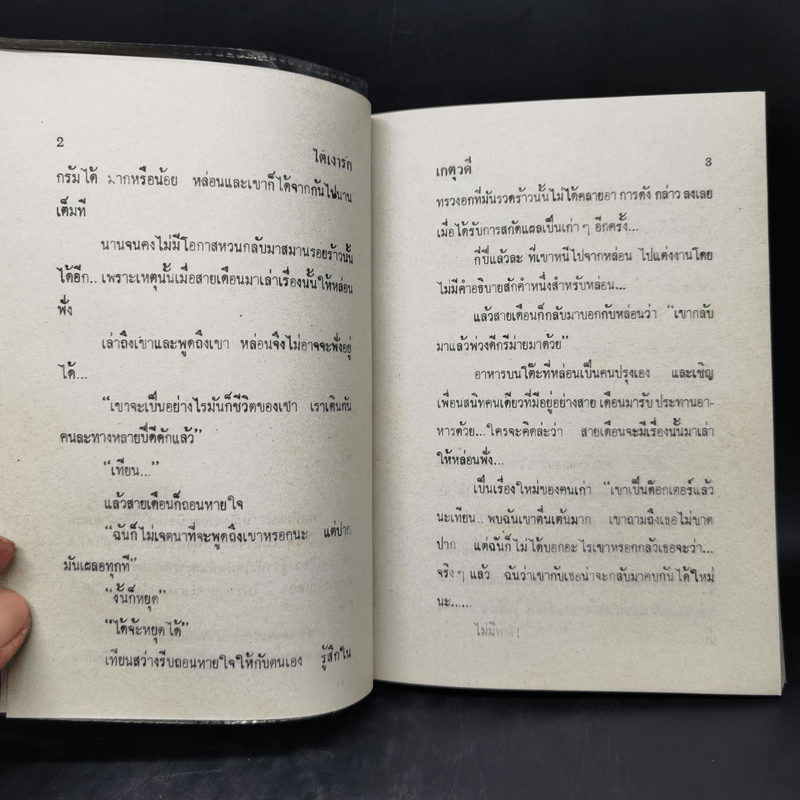 2
ใต้เงารัก
กรัมได้ มากหรือน้อย หล่อนและเขาก็ได้จากกันไปนาน
เต็มที
นานจนคงไม่มีโอกาสหวนกลับมาสมานรอยร้าวนั้น
ได้อีก.. เพราะเหตุนั้นเมื่อสายเดือนมาเล่าเรื่องนั้นให้หล่อน
ฟัง
เล่าถึงเขาและพูดถึงเขา หล่อนจึงไม่อาจจะฟังอยู่
ได้...
“เขาจะเป็นอย่างไรมันก็ชีวิตของเขา เราเดินกัน
คนละทางหลายปีดีดักแล้ว”
“เทียน...”
แล้วสายเดือนก็ถอนหายใจ
“ฉันก็ไม่เจตนาที่จะพูดถึงเขาหรอกนะ แต่ปาก
มันเผลอทุกที”
“งั้นก็หยุด”
“ได้จ้ะหยุดได้”
เทียนสว่างรีบถอนหายใจให้กับตนเอง รู้สึกใน
เกตุวดี
3
ทรวงอกที่มันรวดร้าวนั้นไม่ได้คลายอา การดัง กล่าว ลงเลย
เมื่อได้รับการสกัดแผลเป็นเก่า ๆ อีกครั้ง...
กี่ปีแล้วละ ที่เขาหนีไปจากหล่อน ไปแต่งงานโดย
ไม่มีคำอธิบายสักคำหนึ่งสำหรับหล่อน...
แล้วสายเดือนก็กลับมาบอกกับหล่อนว่า “เขากลับ
มาแล้วพ่วงดีกรีม่ายมาด้วย”
อาหารบนโต๊ะที่หล่อนเป็นคนปรุงเอง และเชิญ
เพื่อนสนิทคนเดียวที่มีอยู่อย่างสาย เดือนมารับ ประทานอา-
หารด้วย... ใครจะคิดล่ะว่า สายเดือนจะมีเรื่องนั้นมาเล่า
ให้หล่อนฟัง...
เป็นเรื่องใหม่ของคนเก่า “เขาเป็นด๊อกเตอร์แล้ว
นะเทียน.. พบฉันเขาตื่นเต้นมาก เขาถามถึงเธอไม่ขาด
ปาก แต่ฉันก็ไม่ได้บอกอะไรเขาหรอกกลัวเธอจะว่า...
จริง ๆ แล้ว ฉันว่าเขากับเธอน่าจะกลับมาคบกันได้ใหม่
นะ......
ไม่มีทาง!